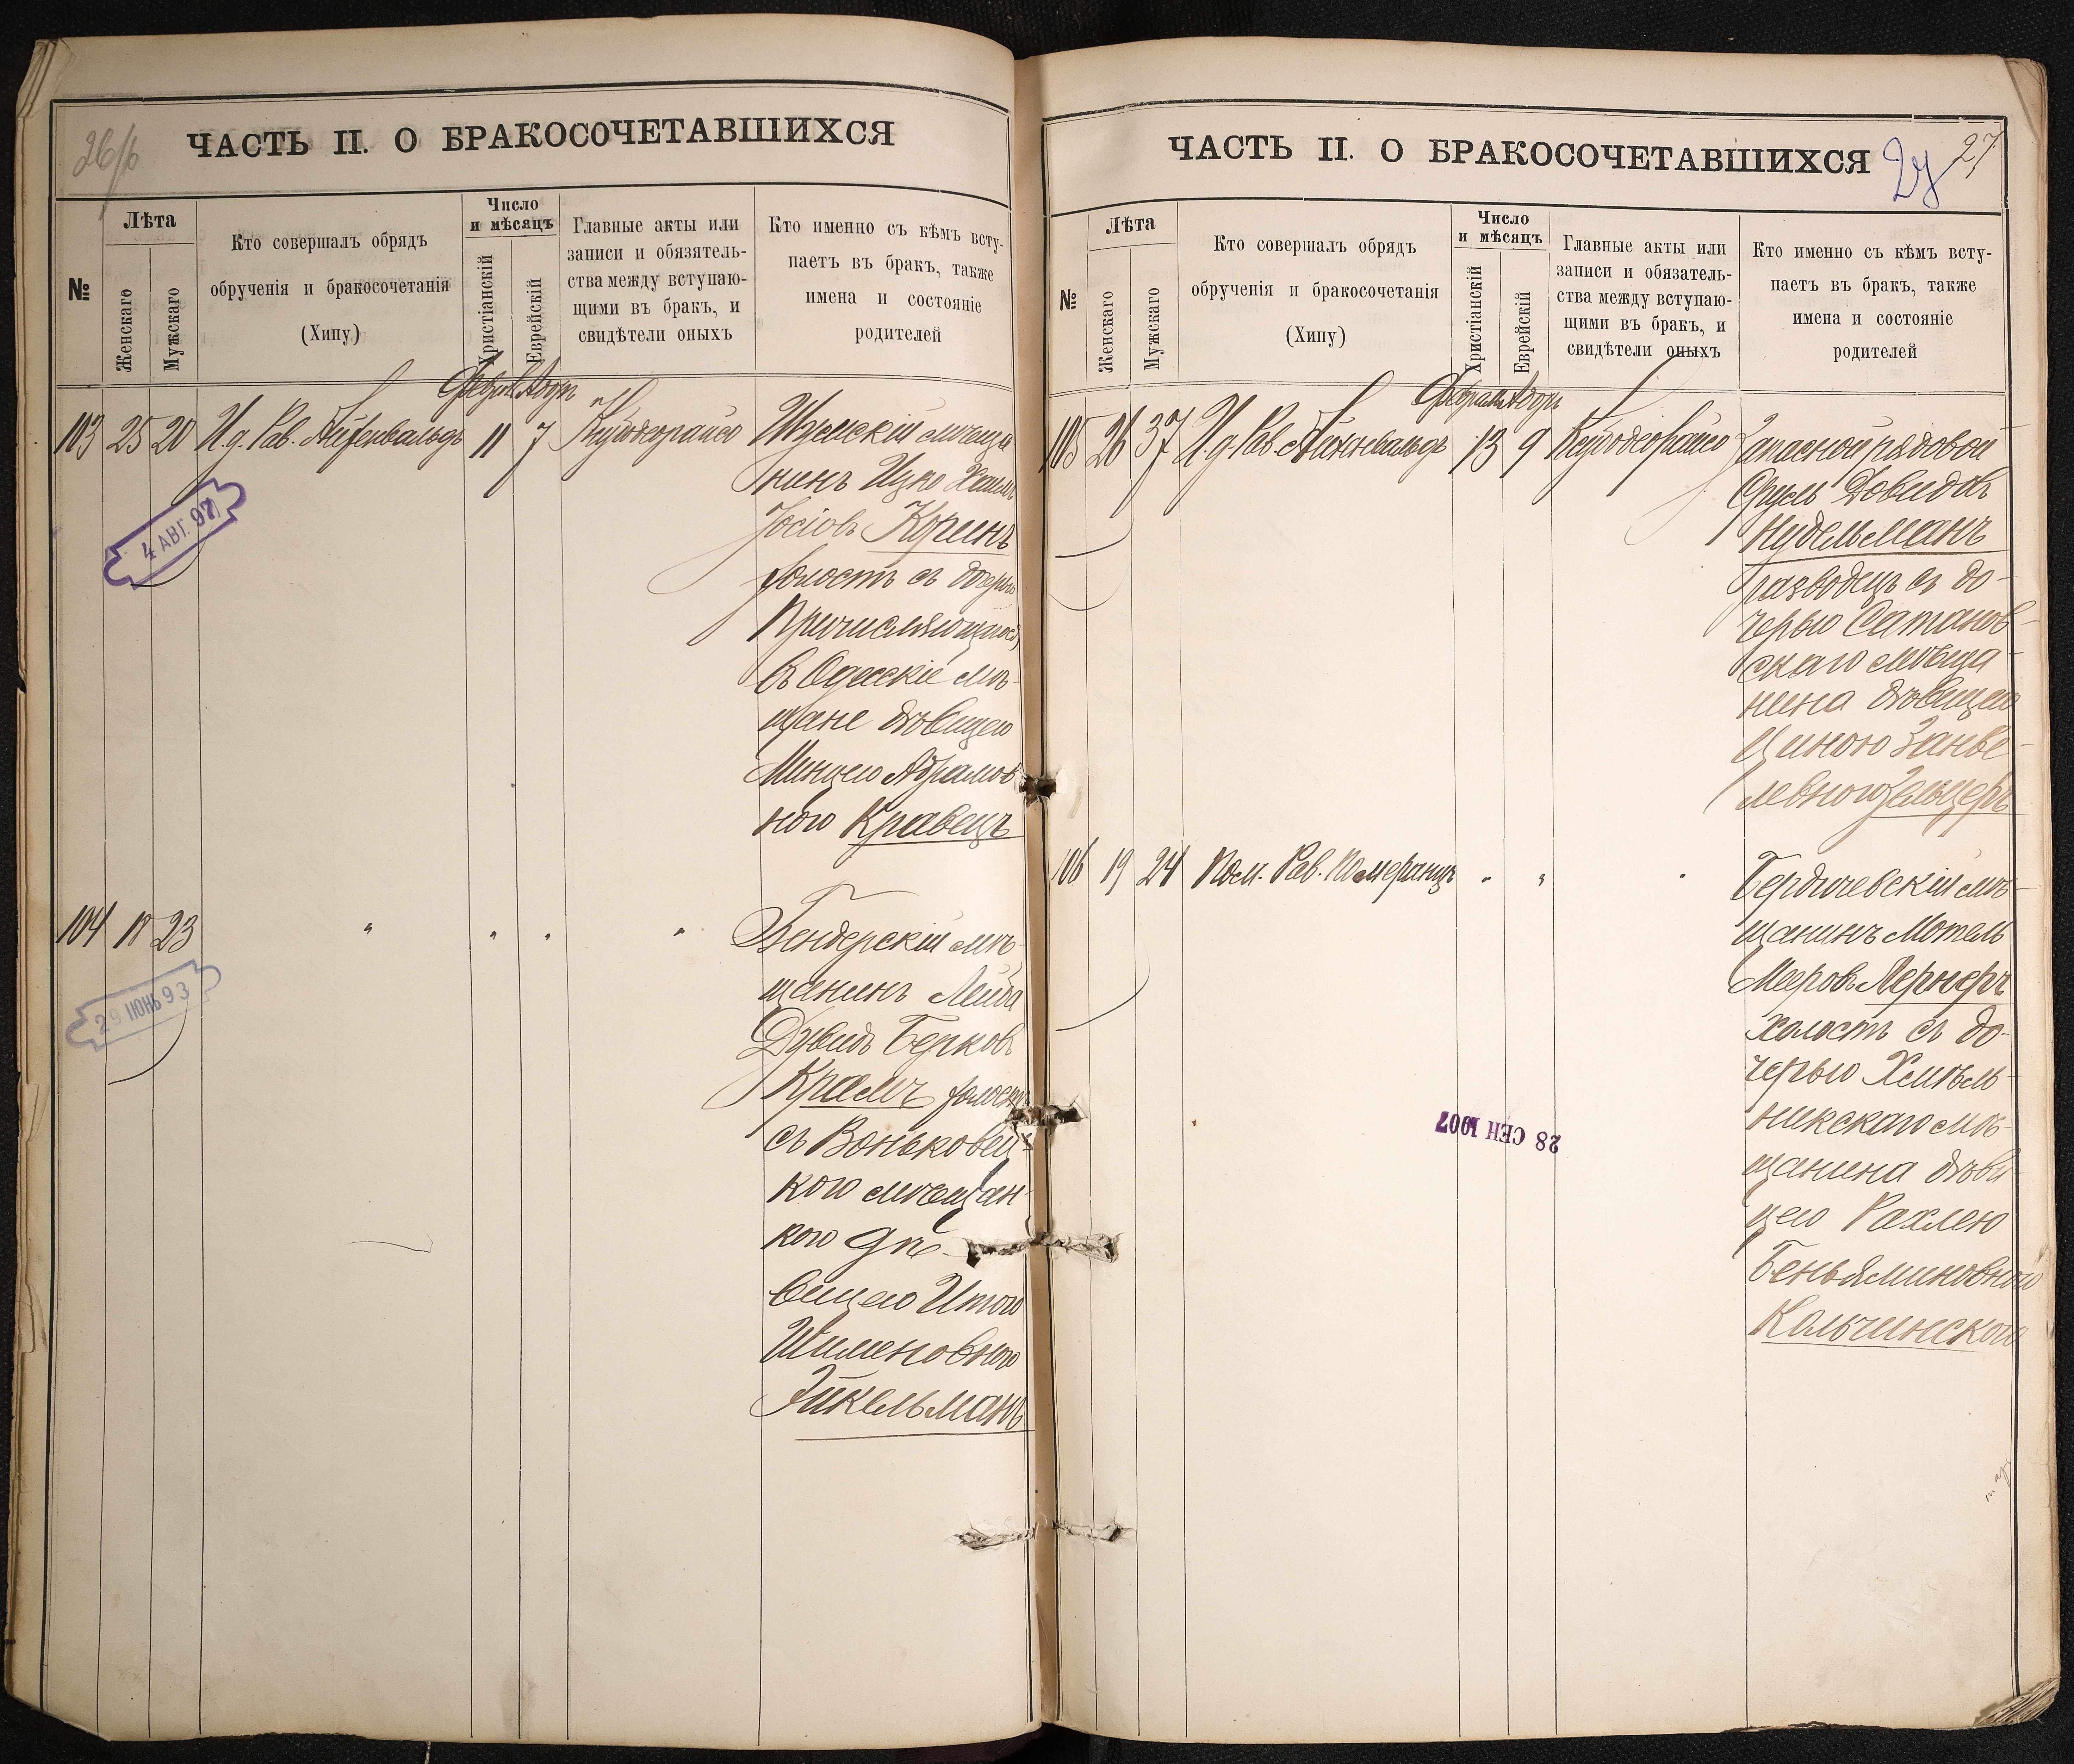 26/б
ЧАСТЬ II. О БРАКОСОЧЕТАВШИХСЯ
№
Лѣта
Женскаго
Мужскаго
Кто совершалъ обрядъ
обрученія и бракосочетанія
(Хипу)
Число
и мѣсяцъ
Христіанскій
Еврейскій
Главные акты или
записи и обязятель-
ства между вступаю-
щими въ бракъ, и
свидѣтели оныхъ
Кто именно съ кѣмъ всту-
паетъ въ бракъ, также
имена и состояніе
родителей
103 25 20 И. д. Рав. 11 7
мѣща
нинъ Ицко Хаим
Іосіовъ Коринъ
холостъ съ дочерью
Причисляющагося
въ Одесскіе мѣ-
щане дѣвицею
Минцею Абрамов
ною Кравецъ
4 АВГ. 97
104 18 23 " " " "
Бендерскій мѣ-
щанинъ Лейба
Дувидъ Берковъ
Крамъ холостъ
съ Воньковец-
кою мѣщан-
кою дѣ-
вицею Итою
Шимоновною
Эйкельманъ
29 ІЮНЬ 93
ЧАСТЬ II. О БРАКОСОЧЕТАВШИХСЯ
27
27
№
Лѣта
Женскаго
Мужскаго
Кто совершалъ обрядъ
обрученія и бракосочетанія
(Хипу)
Число
и мѣсяцъ
Христіанскій
Еврейскій
Главные акты или
записи и обязатель-
ства между вступаю-
щими въ бракъ, и
свидѣтели оныхъ
Кто именно съ кѣмъ всту-
паетъ въ бракъ, также
имена и состояніе
родителей
105 26 37 И. д. Рав. 13 9
Запасной рядовой
Сруль Довидовъ
Нудельманъ
разводецъ съ до-
черью Сатанов-
скаго мѣща-
нина дѣвицею
Циною Занве-
левною Зельцеръ
106 19 24 Пом. Рав. Померанцъ " " "
Бердичевскій мѣ-
щанинъ Мотель
Мееровъ Лернеръ
холостъ съ до-
черью Хмѣль-
никскаго мѣ-
щанина дѣви-
цею Рахлею
Беньяминовною
Кольчинскою
28 СЕН 1907